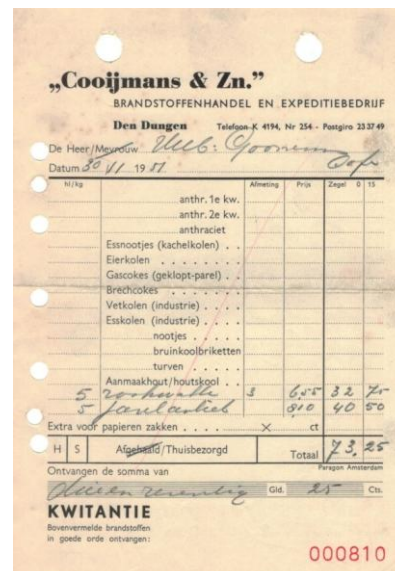 „Cooijmans & Zn.”
BRANDSTOFFENHANDEL EN EXPEDITIEBEDRIJF
Den Dungen Telefoon K 4194, Nr 254 - Postgiro 233749
De Heer/Mevrouw
Datum 30 VI 1951
hl/kg Afmeting Prijs Zegel 0 15
anthr. 1e kw.
anthr. 2e kw.
anthraciet
Essnootjes (kachelkolen) . .
Eierkolen . . . . . . . .
Gascokes (geklopt-parel) . .
Brechcokes . . . . . . .
Vetkolen (industrie) . . . .
Esskolen (industrie) . . . .
nootjes . . . .
bruinkoolbriketten
turven . . . .
Aanmaakhout/houtskool . .
5 6.55 32 75
5 8.10 40 50
Extra voor papieren zakken . . . . . × ct
H S Afgehaald/Thuisbezorgd Totaal 73.25
Paragon Amsterdam
Ontvangen de somma van
Drieen zeventig Gld. 25 Cts.
KWITANTIE
Bovenvermelde brandstoffen
in goede orde ontvangen:
000810